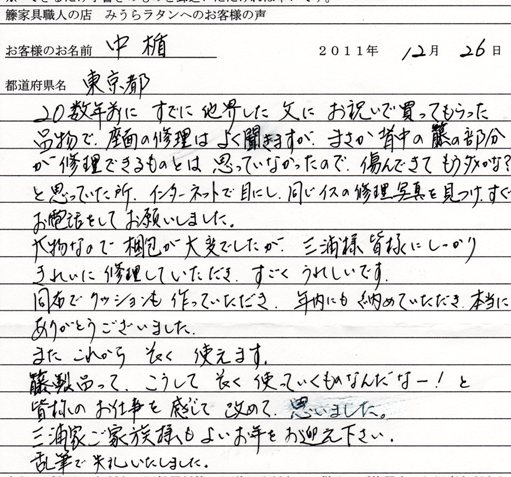 籐家具職人の店 みうらラタンへのお客様の声
お客様のお名前 中楯 2011年 12月 26日
都道府県名 東京都
20数年前に すでに他界した 父に お祝いで買ってもらった
品物で、座面の修理は よく聞きますが、まさか背中の籐の部分
が修理できるものとは 思っていなかったので、傷んできて もうダメかな?
と思っていた所、インターネットで目にし、同じイスの修理写真を見つけ、すぐ
お電話をしてお願いしました。
大物なので 梱包が大変でしたが、三浦様皆様にしっかり
きれいに修理していただき、すごくうれしいです。
同布でクッションも作っていただき、年内にも納めていただき、本当に
ありがとうございました。
また これから 長く 使えます。
籐製品って、こうして 長く 使っていくものなんだなー!と
皆様のお仕事を感じて 改めて、思いました。
三浦家ご家族様もよいお年をお迎え下さい。
乱筆で失礼いたしました。